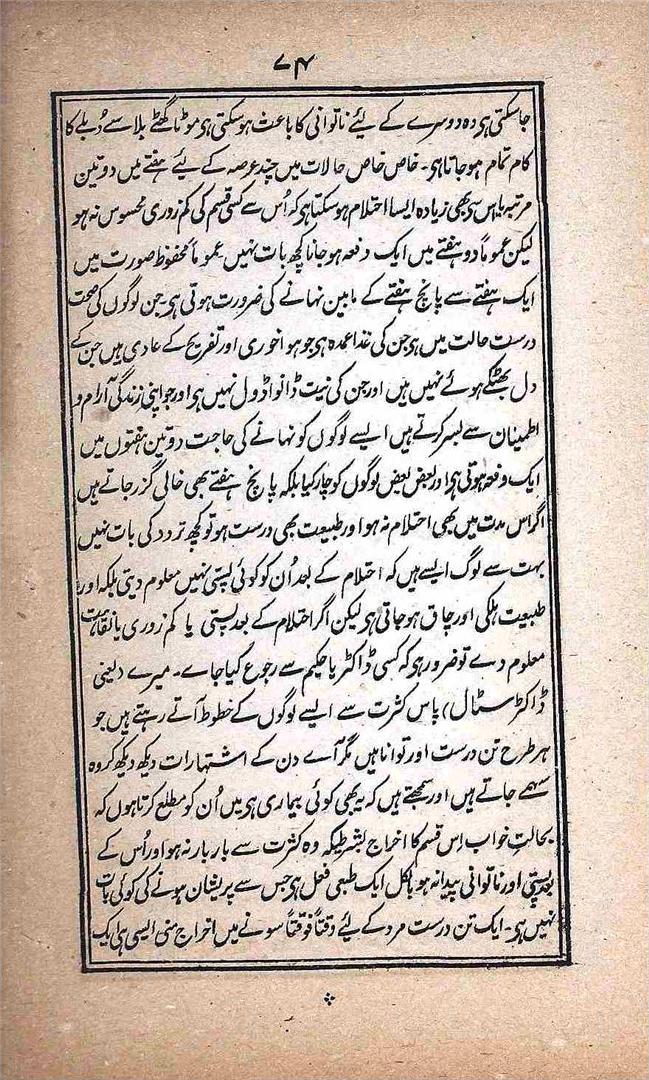 ۷۴
جاسکتی ہی وہ دوسرے کے لیئے ناتوانی کا باعث ہوسکتی ہی موٹا گھٹے بلا سے دُبلے کا
کام تمام ہوجاتا ہی۔ خاص خاص حالات میں چند عرصہ کے لیئے ہفتے میں دو تین
مرتبہ یا اس سی بھی زیادہ ایسا احتلام ہوسکتا ہی کہ اُس سے کسی قسم کی کم زوری محسوس نہ ہو
لیکن عموماً دو ہفتے میں ایک دفعہ ہوجانا کچھ بات نہیں عموماً محفوظ صورت میں
ایک ہفتے سے پانچ ہفتے کے مابین نہانے کی ضرورت ہوتی ہی۔ جن لوگوں کی صحت
درست حالت میں ہی جن کی غذا عمدہ ہی جو ہوا خوری اور تفریح کے عادی ہیں جن کے
دل بھٹکے ہوئے نہیں ہیں اور جن کی نیت ڈانواڈول نہیں ہی اور جو اپنی زندگی آرام و
اطمینان سے بسر کرتے ہیں ایسے لوگوں کو نہانے کی حاجت دو تین ہفتوں میں
ایک دفعہ ہوتی ہی اور بعض بعض لوگوں کو چار کیا بلکہ پانچ ہفتے بھی خالی گزر جاتے ہیں
اگر اس مدت میں بھی احتلام نہ ہو اور طبیعت بھی درست ہو تو کچھ تردد کی بات نہیں
بہت سے لوگ ایسے ہیں کہ احتلام کے بعد اُن کو کوئی پستی نہیں معلوم دیتی بلکہ اور
طبیعت ہلکی اور چاق ہوجاتی ہی لیکن اگر احتلام کے بعد پستی یا کم زوری یا نقاہت
معلوم دے تو ضرور ہو کہ کسی ڈاکٹر یا حکیم سے رجوع کیا جاے۔ میرے (یعنی
ڈاکٹر سٹال) پاس کثرت سے ایسے لوگوں کے خطوط آتے رہتے ہیں جو
ہر طرح تن درست اور توانا ہیں مگر آے دن کے اشتہارات دیکھ دیکھ کر وہ
سہمے جاتے ہیں اور سمجھتے ہیں کہ یہ بھی کوئی بیماری ہی میں اُن کو مطلع کرتا ہوں کہ
بحالتِ خواب اِس قسم کا اخراج بشرطیکہ وہ کثرت سے بار بار نہ ہو اور اُس کے
بعد پستی اور ناتوانی پیدا نہ ہو بالکل ایک طبعی فعل ہی جس سے پریشان ہونے کی کوئی بات
نہیں ہی۔ ایک تن درست مرد کے لیئے وقتاً فوقتاً سونے میں اخراج منی ایسی ہی ایک